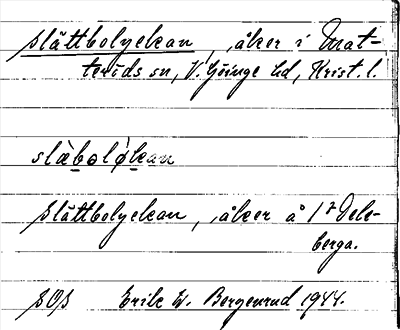 Slättbolyekan, åker i Mat-
teröds sn, V. Göinge hd, Krist. l.
slæbolø̀kan
Slättbolyekan, åker å 1 2 Dele-
berga.
SOS Erik W. Bergenrud 1944.